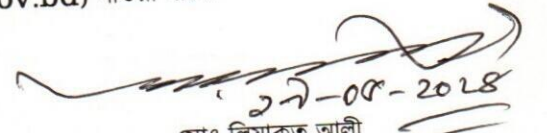 ov.bd)
২৯-০৫-২০২৪
মোঃ লিয়াকত আলী